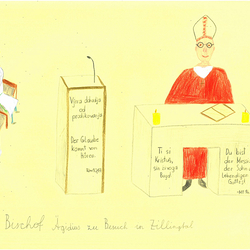 Vjera dolazi
od
predikovanja
Der Glaube
kommt vom
Hören.
Ti si
Kristus,
sin živoga
Boga!
Du bist
der Messias
der Sohn des
lebendigen
Gottes!
Bischof Ägidius zu Besuch in Zillingtal